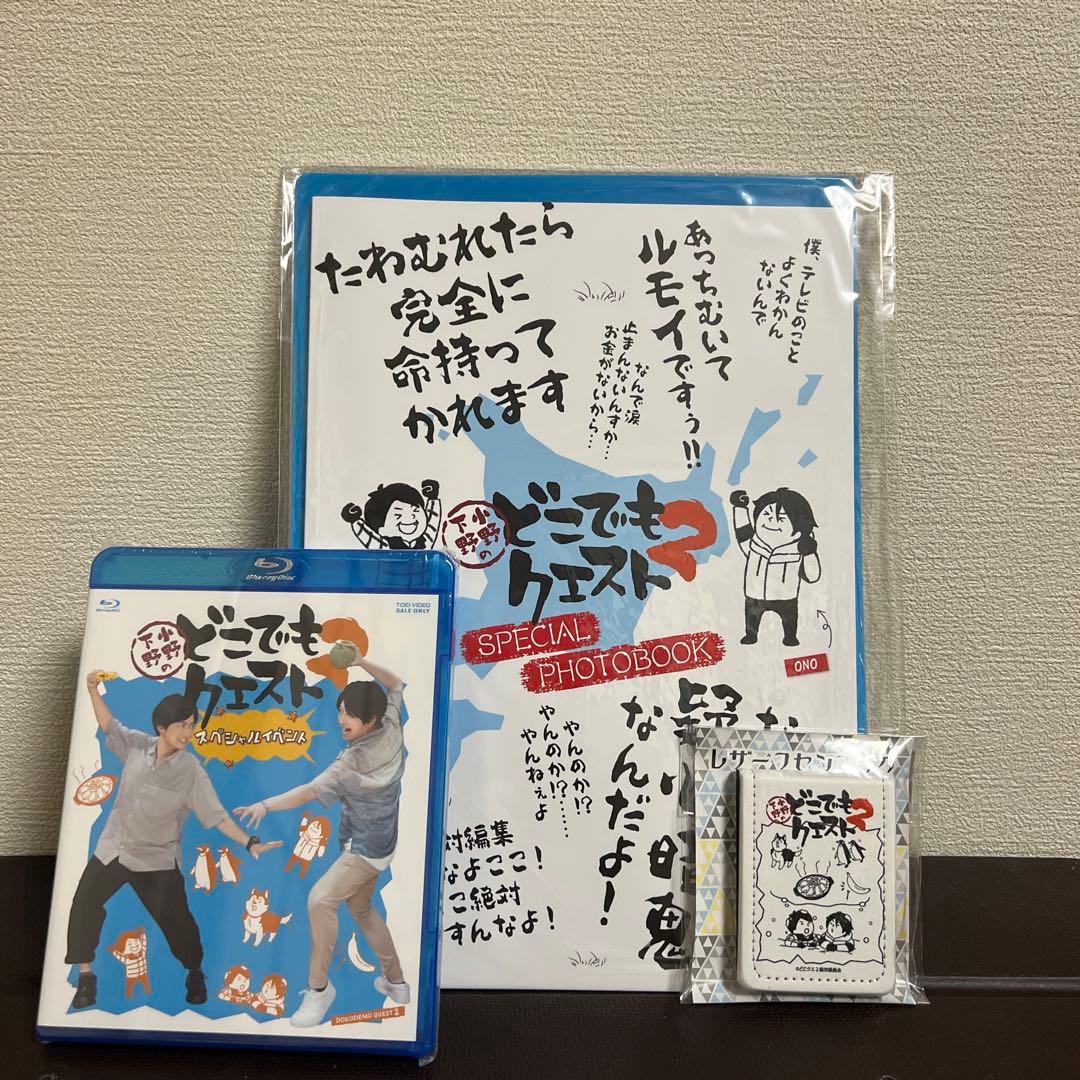 たわむれたら
完全に
命持って
かれます
あっちむいて
ルモイですぅ!!
僕、テレビのこと
よくわかん
ないんで
なんで涙
止まんないんすか…
お金がないから…
小野
下野の
どこでも
クエスト2
SPECIAL
PHOTOBOOK
ONO
やんのか!?
やんのか!?……
やんねぇよ
なんだよ!
対編集
なよここ!
こ絶対
すんなよ!
Blu-ray Disc
Blu-ray Disc
TOEI VIDEO
SALE ONLY
小野
下野の
どこでも
クエスト2
スペシャルイベント
DOKODEMO QUEST 2
レザーフセン
小野
下野の
どこでも
クエスト2
©どこクエ2製作委員会